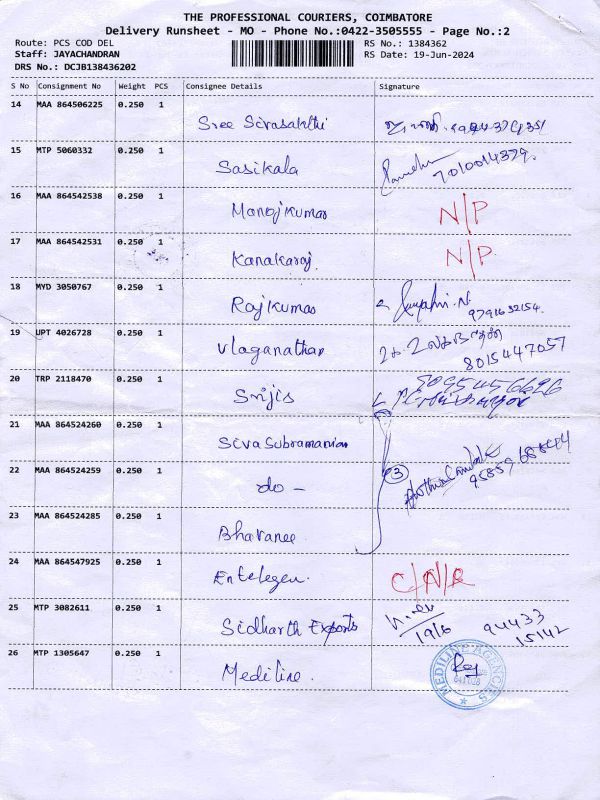 THE PROFESSIONAL COURIERS, COIMBATORE
Delivery Runsheet - MO - Phone No.:0422-3505555 - Page No.:2
Route: PCS COD DEL
RS No.: 1384362
Staff: JAYACHANDRAN
RS Date: 19-Jun-2024
DRS No.: DCJB138436202
S No Consignment No Weight PCS Consignee Details Signature
14 MAA 864506225 0.250 1
Sree Sivasakthi
15 MTP 5060332 0.250 1
Sasikala 7010014379.
16 MAA 864542538 0.250 1
Manojkumar N/P
17 MAA 864542531 0.250 1
Kanakaraj. N/P.
18 MYD 3050767 0.250 1
Rajkumar
9791632154.
19 UPT 4026728 0.250 1
Vlaganathan 8015447057
20 TRP 2118470 0.250 1
Srijis
21 MAA 864524260 0.250 1
Siva Subramanian
22 MAA 864524259 0.250 1
do - 3
23 MAA 864524285 0.250 1
Bhavanee
24 MAA 864547925 0.250 1
Entelegen. C/N/R
25 MTP 3082611 0.250 1
Sidharth Exports 19/6 94433
15142
26 MTP 1305647 0.250 1
Mediline. Raj
MEDILINE AGENCIES